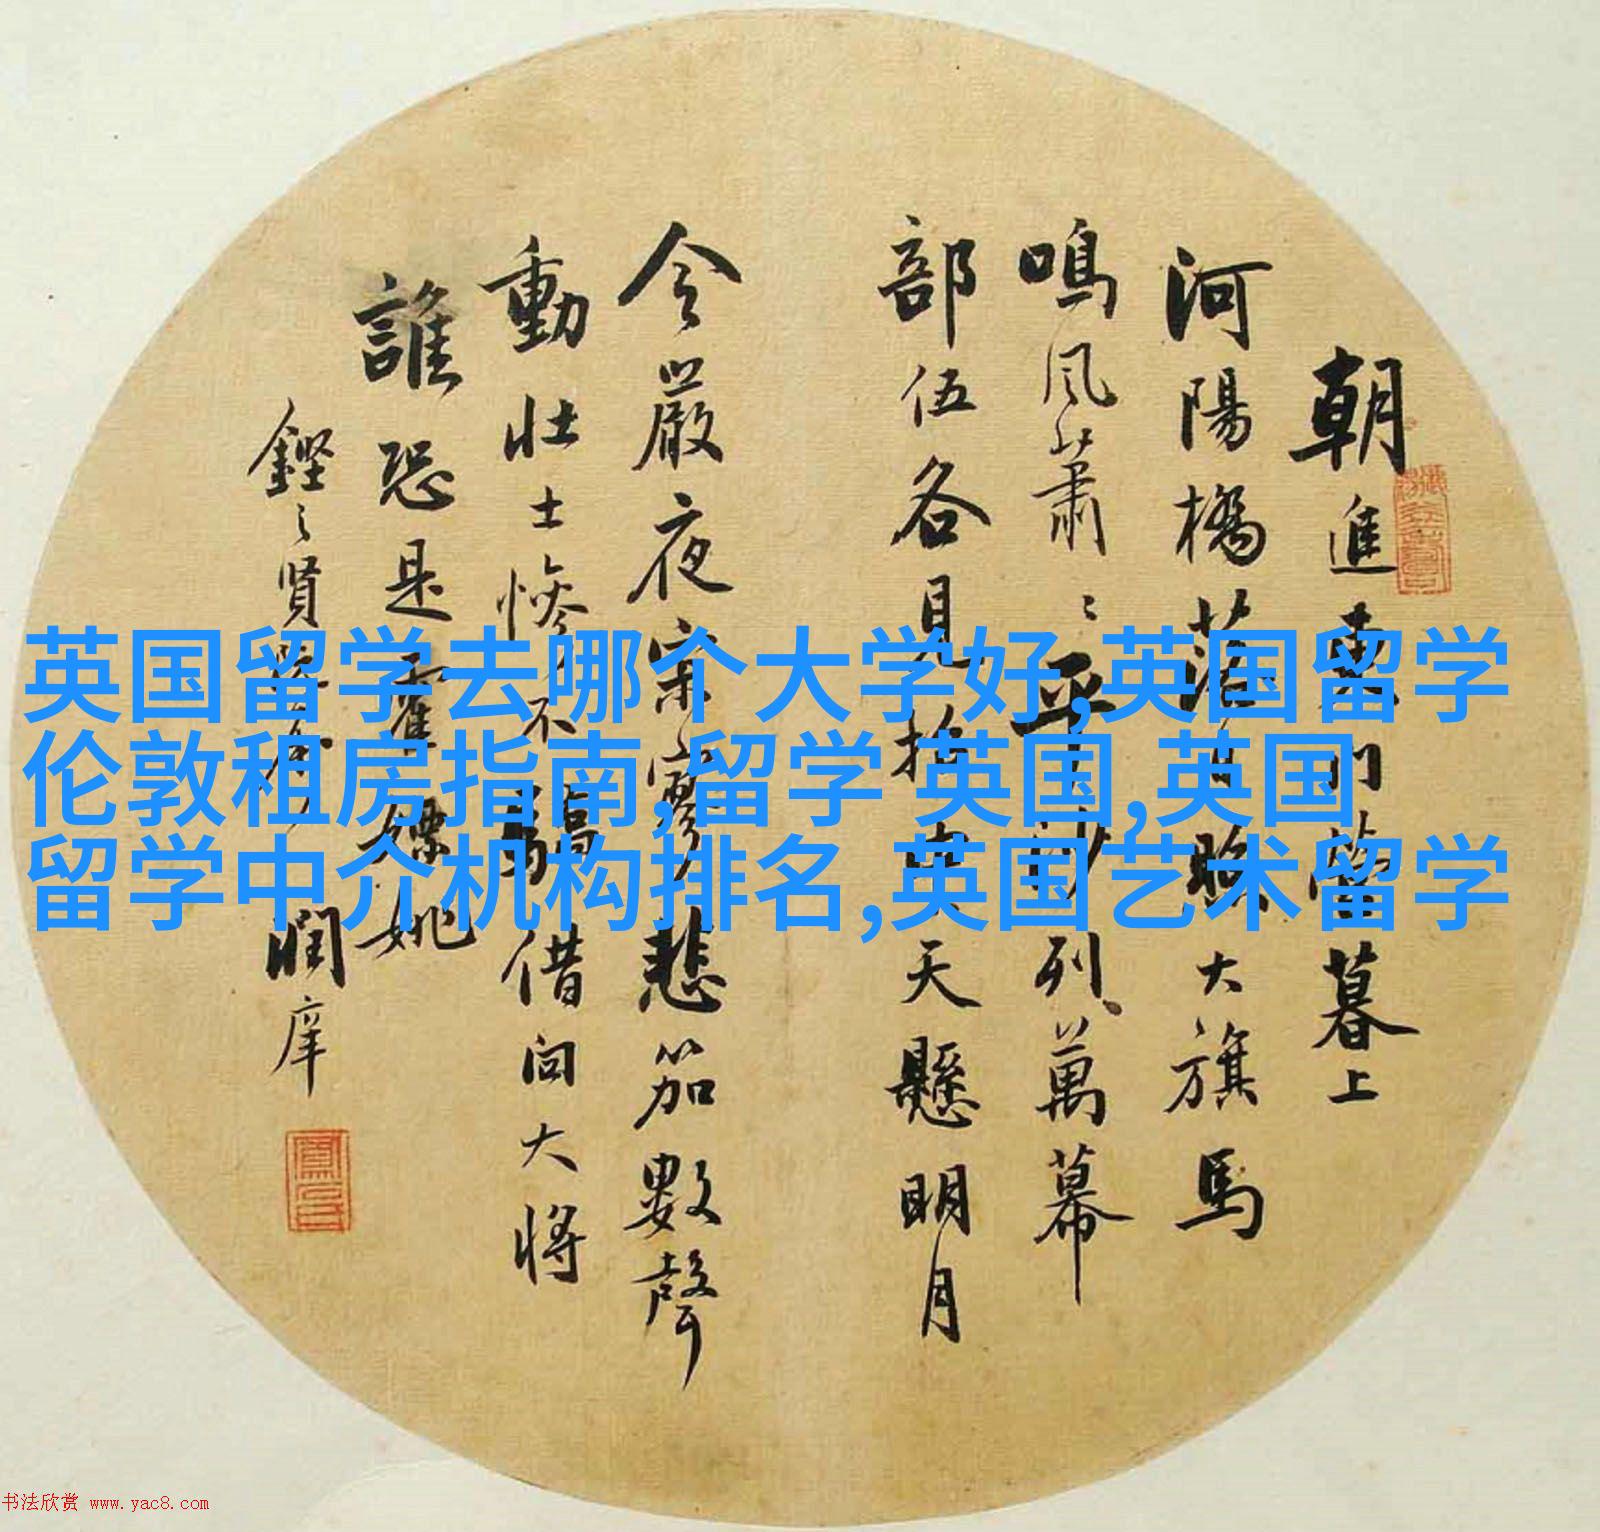 英国留学去哪个大学好,英国留学
伦敦租房指南,留学 英国,英国
留学中介机构排名,英国艺术留学
朝進東門營暮上
河陽橋落日照大旗馬
鳴風蕭〻平沙列萬幕
部伍各見招中天懸明月
令嚴夜寂寥悲笳數聲
動壯士慘不驕借问大將
誰恐是霍嫖姚
賢
潤庠
书法欣赏 www.yac8.com